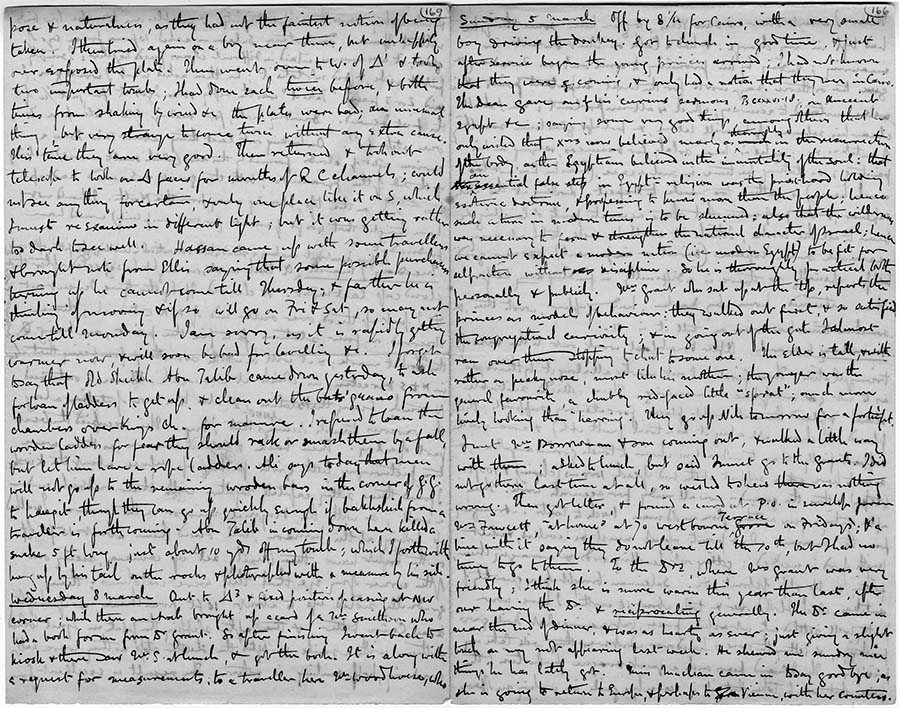 (169
pose & naturalness, as they had not the faintest notion of being
taken. I then tried again on a boy near there, but unhappily
over exposed the plate. Then went over to W. of Δ¹ & took
two important tombs; I had done each twice before, & both
times from shaking by wind &c the plates were bad; an unusual
thing, but very strange to come twice without any extra cause.
This time they are very good. Then returned & took out
telescope to look on Δ faces for mouths of Q C channels; could
not see anything for certain, & only one place like it on S, which
I must re examine in different light; but it was getting rather
too dark to see well. Hassan came up with some travellers
& brought note from Ellis saying that some possible purchasers
turning up he cannot come till Thursday; & farther he is
thinking of moving & if so will go on Fri & Sat, so may not
come till Monday. I am sorry, as it is rapidly getting
warmer now & will soon be bad for levelling &c. I forgot
to say that Old Sheikh Abu Talib came down yesterday, to ask
for loan of ladders to get up & clean out the bats' guano from
chambers over kings ch. for manure. I refused to loan the
wooden ladders for fear they should rack or smash them by a fall,
but let him have a rope ladder. Ali says today that men
will not go up to the remaining wooden bars in the corner of G.G.
to hang it, though they can go up quickly enough if bakhshish from a
traveller is forthcoming. Abu Talib in coming down here killed a
snake 5 ft long, just about 10 yds off my tomb; which I forthwith
hung up by his tail on the rocks & photographed with a measure by his side.
Wednesday 8 march Out to Δ³ & fixed position of casing at NW
corner; while there an arab brought up a card of a Mr Smitham who
had a book for me from Dr Grant. So after finishing I went back to
kiosk & there saw Mr S. at lunch, & got the book. It is along with
a request for measurements, to a traveller here Mr Wordhouse, who
(166
Sunday 5 march Off by 8½ for Cairo, with a very small
boy driving the donkey. Got to church in good time, & just
after service began the young princes arrived; I had not known
that they were coming, & only had a notion that they were in Cairo.
The dean gave one of his curious sermons on ancient
Egypt &c; saying some very good things, among others that he
only wished that Xns now believed nearly as thoroughly in the resurrection
of the body as the Egyptians believed in the immortality of the soul: that
an essential false step in Egyptn religion was the priesthood holding
esoteric doctrine, & professing to know more than the people, hence
such action in modern times is to be shunned; also that the wilderness
was necessary to form & strengthen the national character of Israel; hence
we cannot expect a modern nation (i.e. modern Egypt) to be fit for
self action without discipline. So he is thoroughly practical both
personally & publicly. Mrs Grant who sat up at the top, reports the
princes as models of behaviour: they walked out first, & so satisfied
the congregational curiosity; & in going out of the gate I almost
ran over them stopping to chat to some one. The elder is tall, & with
rather a peaky nose, most like his mother; the younger was the
general favourite a chubby red-faced little "sprat"; much more
lively looking than "herring". They go up Nile tomorrow for a fortnight.
I met Mrs & son coming out, & walked a little way
with them; asked to lunch, but said I must go to the Grants. I did
not go there last time at all, so wished to shew there was nothing
wrong. Then got letter, & found a card at P.O. in envelope from
Mrs Fawcett, "at home" at 70 westbourne Terrace on Fridays, & a
line with it saying they do not leave till the 10th, but I had no
time to go to them. To the Drs, where Mrs Grant was very
friendly; I think she is more warm this year than last, after
our having the Dr. & reciprocating generally. The Dr. came in
near the end of dinner, & was as hearty as ever; just giving a slight
touch on my not appearing last week. He shewed me sundry nice
things he has lately got. Miss Maclean came in to say good bye; as
she is going to return to Europe, & perhaps to Vienna, with her countess.